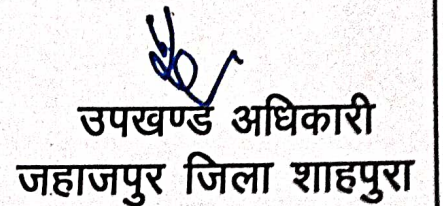 उपखण्ड अधिकारी
जहाजपुर जिला शाहपुरा